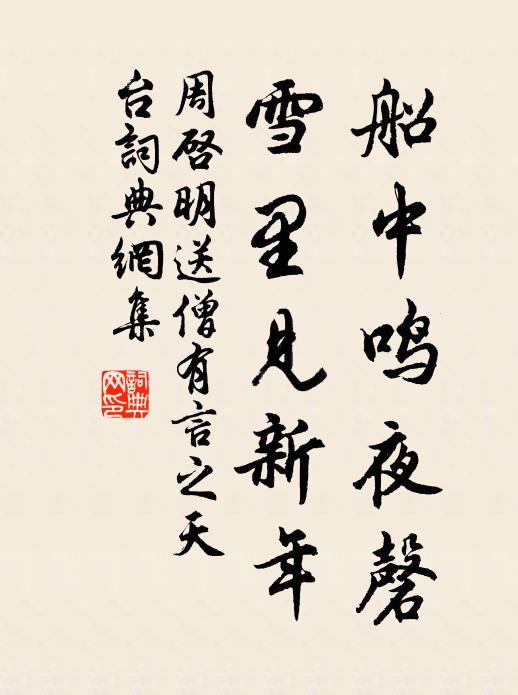 船中鸣夜磬
雪里见新年
周啓明送僧有言之天
台詞典網集
詞典
网印